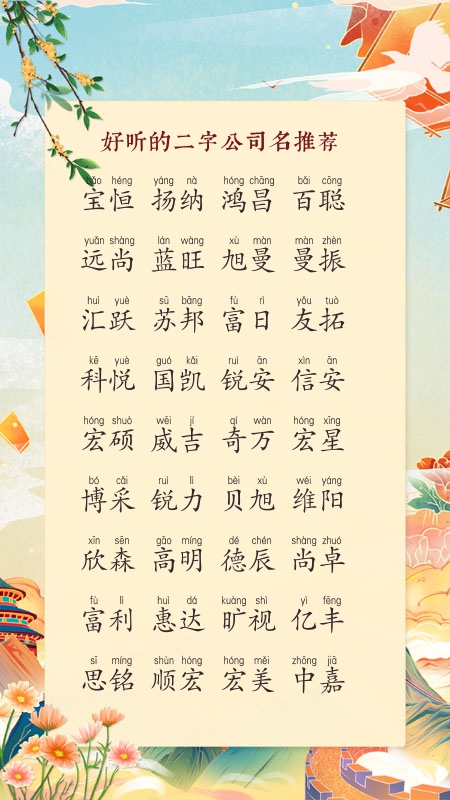 好听的二字公司名推荐
bǎo héng yáng nà hóng chāng bǎi cōng
宝恒 扬纳 鸿昌 百聪
yuǎn shàng lán wàng xù màn màn zhèn
远尚 蓝旺 旭曼 曼振
huì yuè sū bāng fù rì yǒu tuò
汇跃 苏邦 富日 友拓
kē yuè guó kǎi ruì ān xìn ān
科悦 国凯 锐安 信安
hóng shuò wēi jí qí wàn hóng xīng
宏硕 威吉 奇万 宏星
bó cǎi ruì lì bèi xù wéi yáng
博采 锐力 贝旭 维阳
xīn sēn gāo míng dé chén shàng zhuó
欣森 高明 德辰 尚卓
fù lì huì dá kuàng shì yì fēng
富利 惠达 旷视 亿丰
sī míng shùn hóng hóng měi zhōng jiā
思铭 顺宏 宏美 中嘉